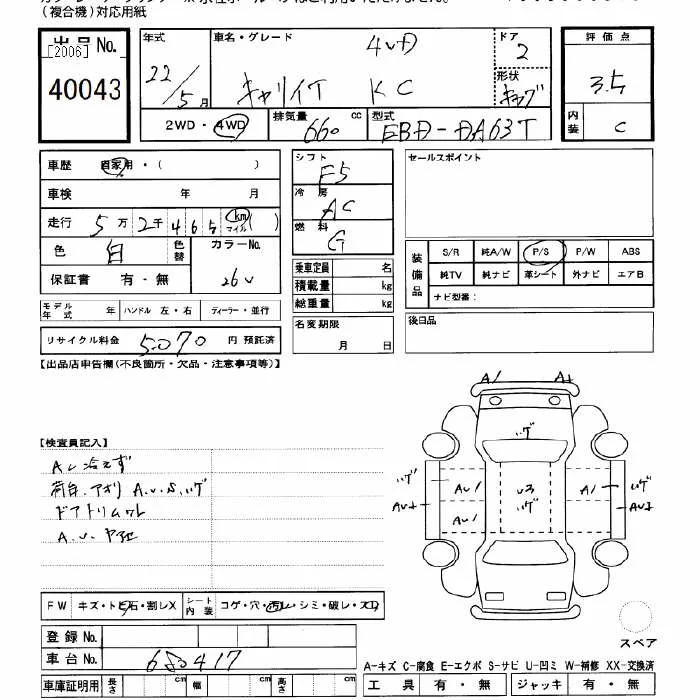 (複合機)対応用紙
出品No.
[2006]
40043
年式
22/5月
車名・グレード
4WD
キャリイT KC
ドア
2
形状
キャブ
評価点
3.5
内装
C
2WD・4WD
排気量
660
cc
型式
EBD-DA63T
車歴 自家用・( )
車検 年 月
走行 5万2千465 km マイル ( )
色 白 色替 カラーNo. 26U
保証書 有・無
モデル年式 年 ハンドル 左・右 ディーラー・並行
リサイクル料金 5070 円 預託済
シフト
F5
冷房
AC
燃料
G
乗車定員 名
積載量 kg
総重量 kg
名変期限
月 日
セールスポイント
装備品
S/R 純A/W P/S P/W ABS
純TV 純ナビ 革シート 外ナビ エアB
ナビ型番:
後日品
【出品店申告欄(不良箇所・欠品・注意事項等)】
【検査員記入】
A/C冷えず
荷台、アオリ A.U.S.サゲ
ドアトリムワレ
FW キズ・トビ石・割レX
シート内装 コゲ・穴・汚レ・シミ・破レ・スレ
登録No.
車台No. 680417
車庫証明用 長さ cm 幅 cm 高さ cm
A/
A+
サゲ
サゲ
AU+
AU/
AU/
U3
サゲ
A/
サゲ
AU+
スペア
A-キズ C-腐食 E-エクボ S-サビ U-凹ミ W-補修 XX-交換済
工具 有・無 ジャッキ 有・無